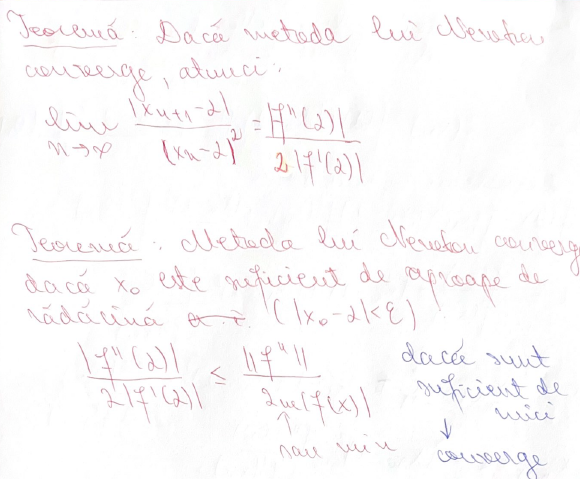 Teoremă: Dacă metoda lui Newton
converge, atunci:
lim n→∞ |x_{n+1}-2| / (x_n-2)^2 = |f''(2)| / 2|f'(2)|
Teoremă: Metoda lui Newton converg
dacă x₀ este suficient de aproape de
rădăcină (|x₀-2|<ε)
|f''(2)| / 2|f'(2)| ≤ ||f''|| / 2m|f(x)|
↑
sau min
dacă sunt
suficient de
mici
↓
converge